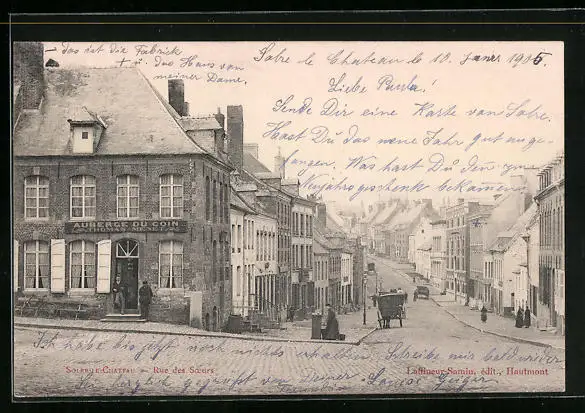 - das ist die Fabrick
+ das Haus von
meiner Dame.
Solre le Chateau 10. Janr 1905
Liebe Paula!
Sende Dir eine Karte von Solre.
Hast Du das neue Jahr gut ange-
fangen, Was hast Du den zum
Neujahrgeschenk bekommen
AUBERGE DU COIN
Ich habe bis jetzt noch nichts erhalten. Schreibe mir bald wieder
SOLRE-LE-CHATEAU - Rue des Sœurs
Laffineur-Samin, édit., Hautmont
Sei herzlich gegrüsst von Deiner Geiger